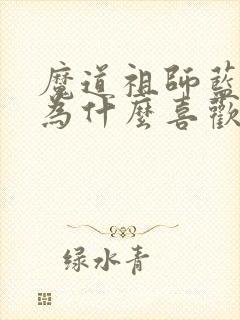 魔道祖師藍
為什麼喜歡
绿水青